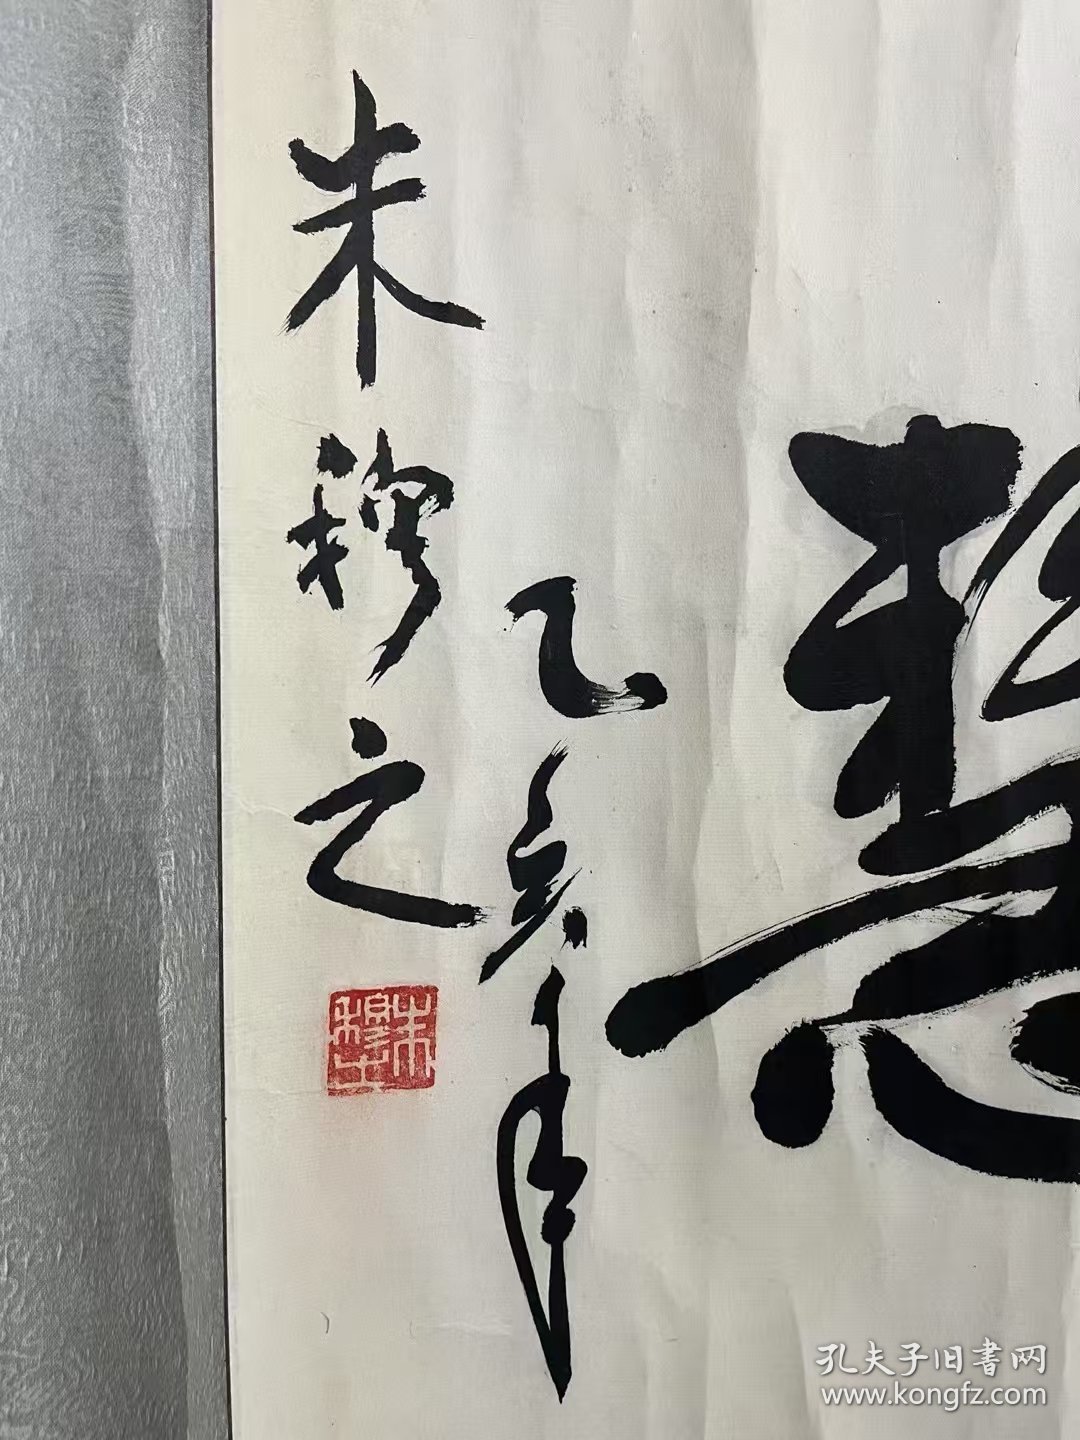 乙亥年
朱穆之
朱穆之
孔夫子旧書网
www.kongfz.com